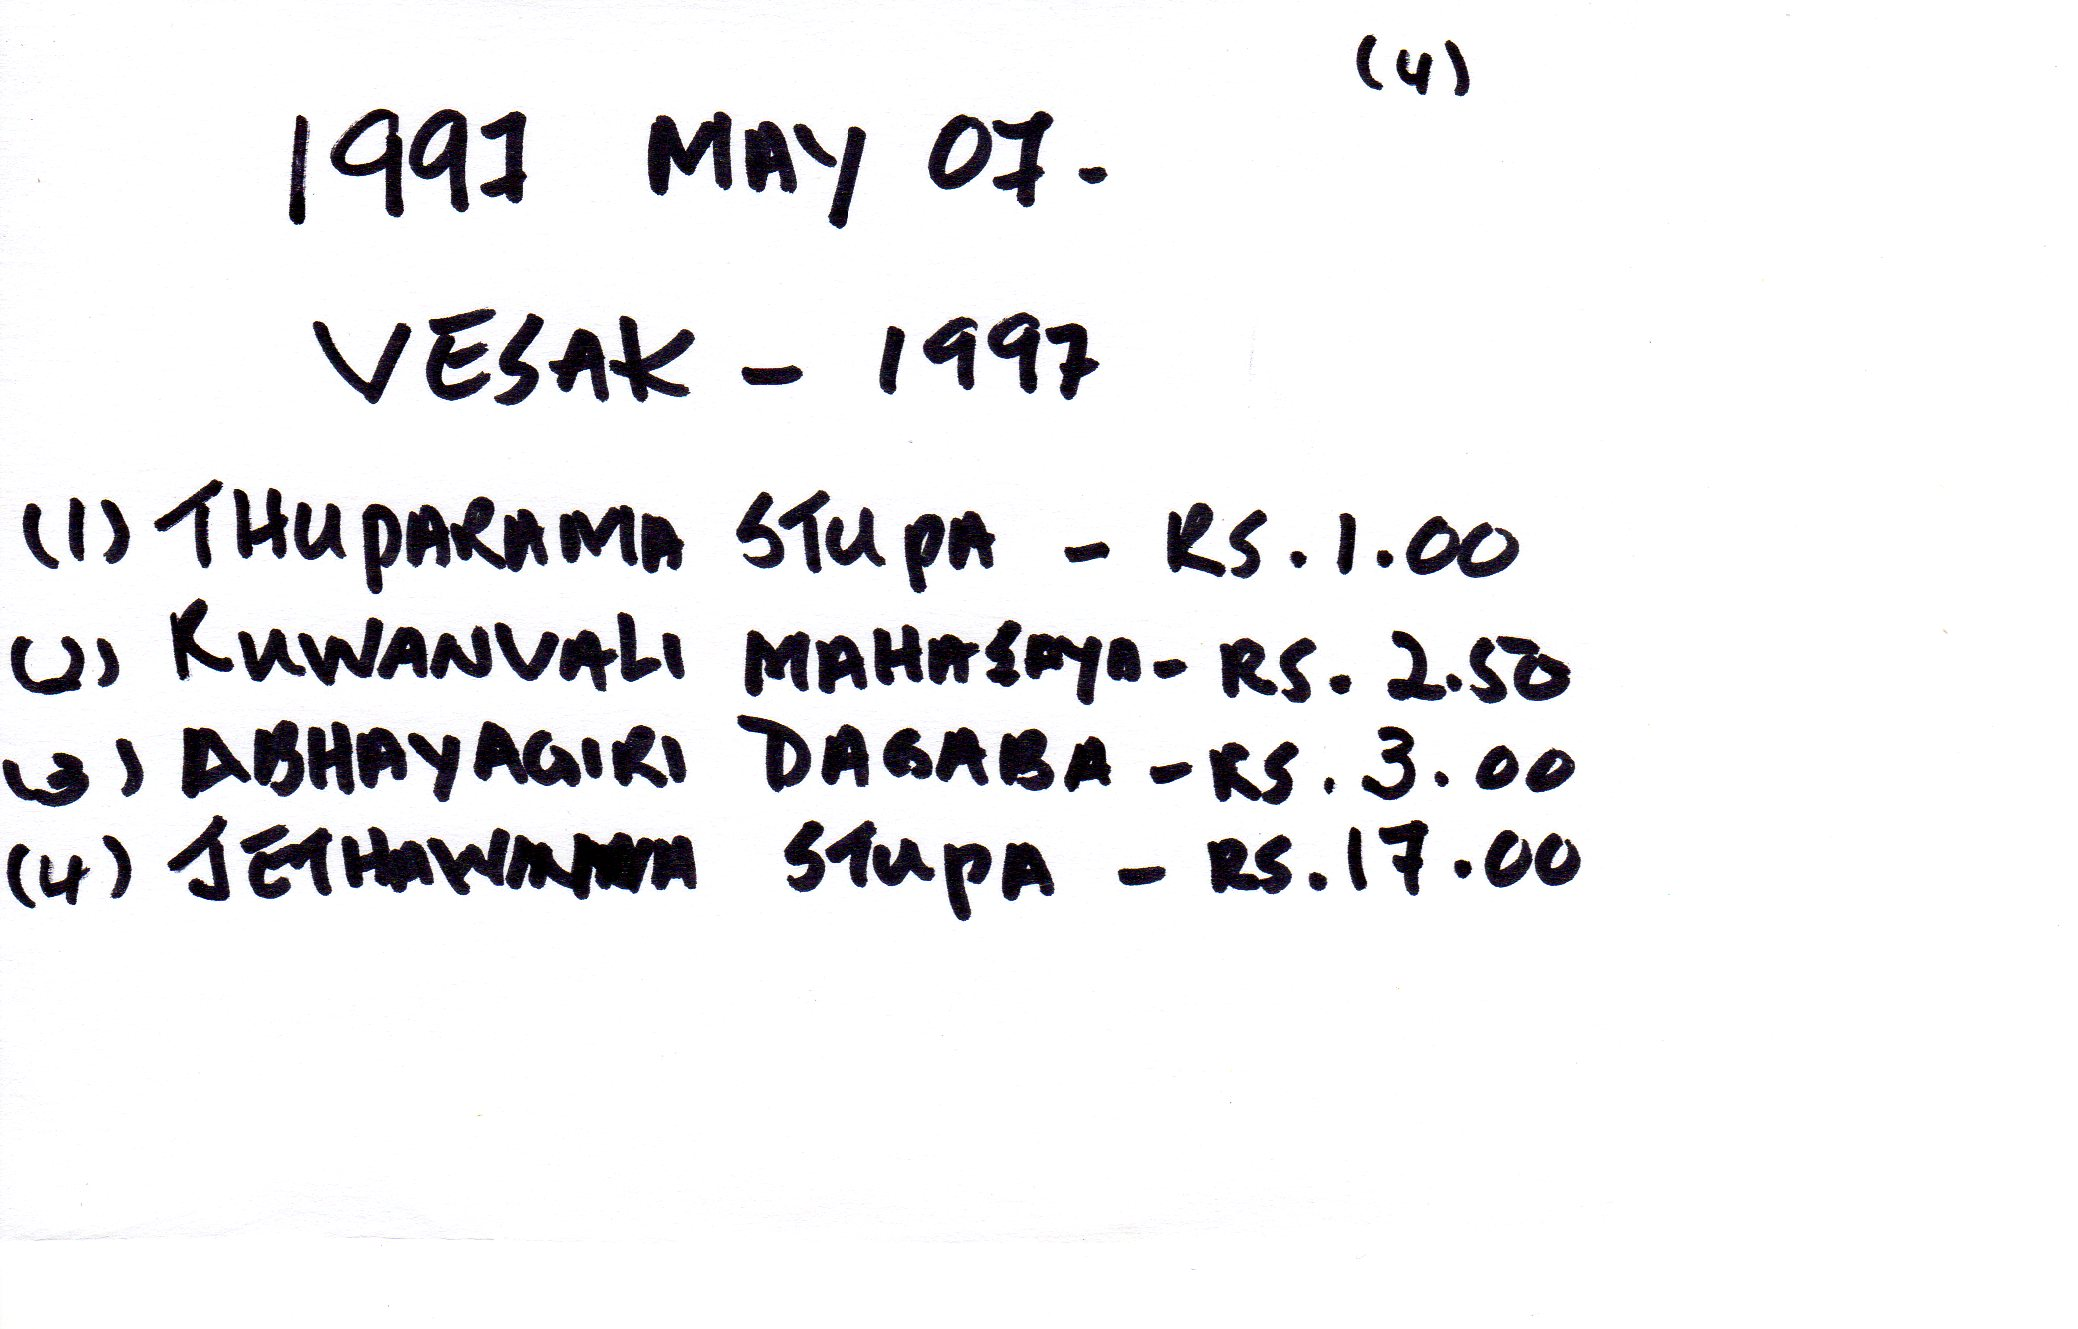 (4)
1997 MAY 07.
VESAK - 1997
(1) THUPARAMA STUPA - RS. 1.00
(2) RUWANVALI MAHASAYA - RS. 2.50
(3) ABHAYAGIRI DAGABA - RS. 3.00
(4) JETHAWANA STUPA - RS. 17.00